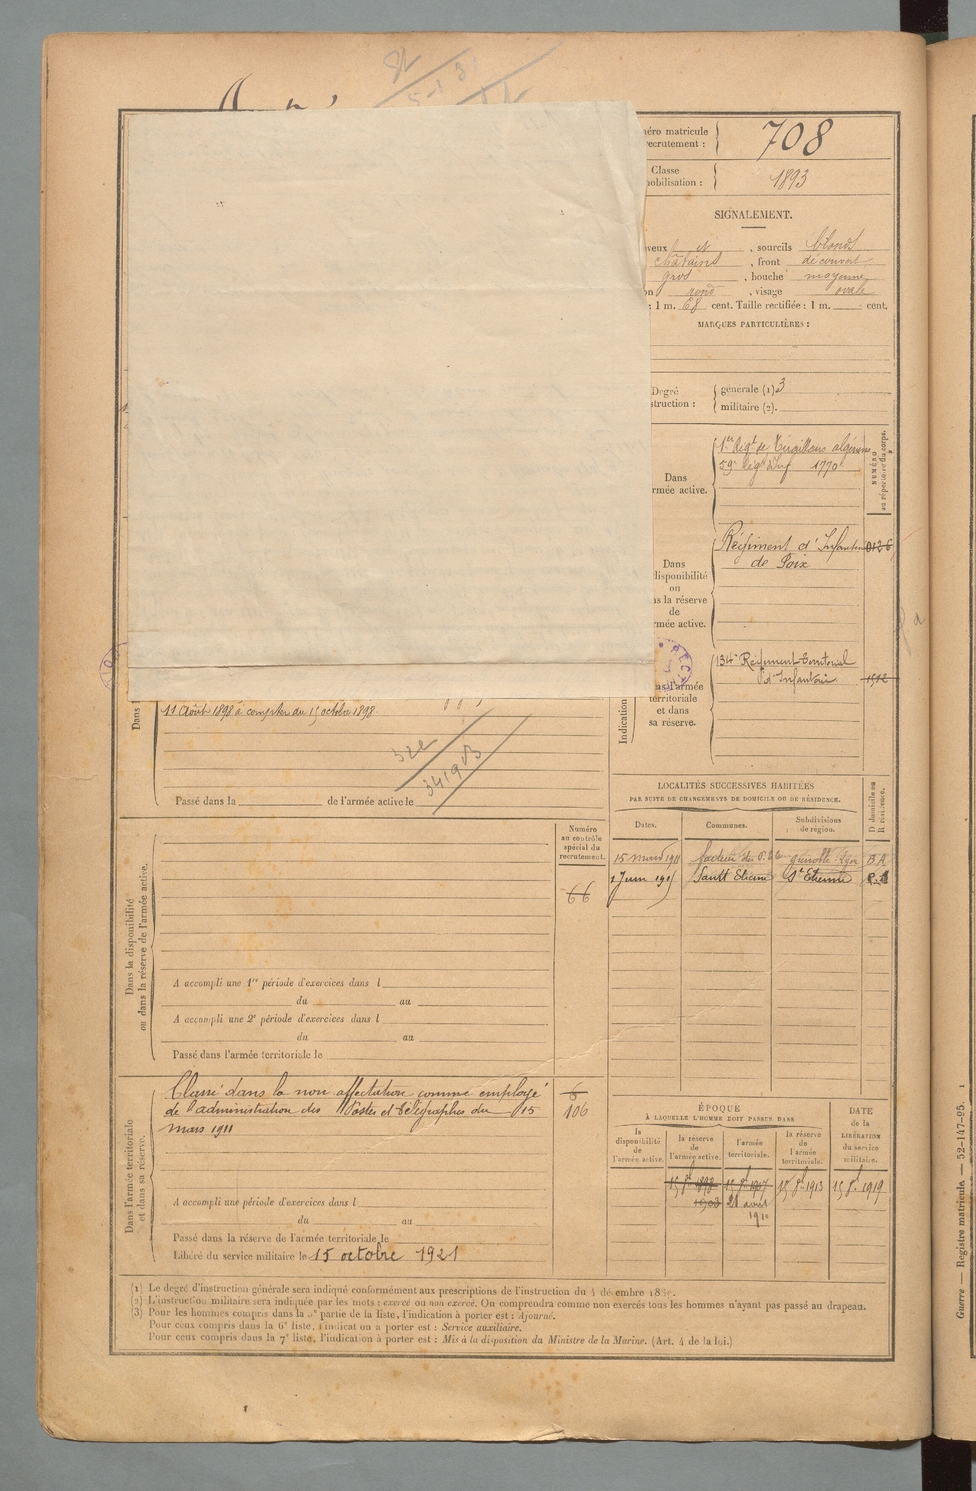 708
1893
SIGNALEMENT.
sourcils blonds
châtains , front découvert
gros , bouche moyenne
rond , visage ovale
: 1 m. 68 cent. Taille rectifiée : 1 m. cent.
MARQUES PARTICULIÈRES :
Degré
générale (1) 3
militaire (2).
1er Régt de Tirailleurs algériens
59e Régt d'Inf 1770
Dans
armée active.
NUMÉRO
au répertoire du corps.
Régiment d'Infanterie
de Foix
Dans
disponibilité
ou
la réserve
de
armée active.
134e Régiment Territorial
d'Infanterie
1512
l'armée
territoriale
et dans
sa réserve.
Indication
Dans
11 Août 1898 à compter du 15 octobre 1898.
322
341903
Passé dans la de l'armée active le
LOCALITÉS SUCCESSIVES HABITÉES
PAR SUITE DE CHANGEMENTS DE DOMICILE OU DE RÉSIDENCE.
Dates. Communes. Subdivisions de région. D domicile ou R résidence.
15 mars 1911 facteur des P. Grenoble
Juin Saint Etienne St Etienne
Dans la disponibilité
ou dans la réserve de l'armée active.
Numéro
au contrôle
spécial du
recrutement.
66
A accompli une 1re période d'exercices dans l
du au
A accompli une 2e période d'exercices dans l
du au
Passé dans l'armée territoriale le
Dans l'armée territoriale
et dans sa réserve.
Classé dans la non affectation comme employé
de l'administration des Postes et Télégraphes du 15
mars 1911
106
A accompli une période d'exercices dans l
du au
Passé dans la réserve de l'armée territoriale le
Libéré du service militaire le 15 octobre 1921
ÉPOQUE
À LAQUELLE L'HOMME DOIT PASSER DANS
la disponibilité de l'armée active.
la réserve de l'armée active.
l'armée territoriale.
la réserve de l'armée territoriale.
DATE de la LIBÉRATION du service militaire.
15 8bre 1913 15 8bre 1919
21 avril
1910
(1) Le degré d'instruction générale sera indiqué conformément aux prescriptions de l'instruction du 4 décembre
(2) L'instruction militaire sera indiquée par les mots : exercé ou non exercé. On comprendra comme non exercés tous les hommes n'ayant pas passé au drapeau.
(3) Pour les hommes compris dans la 5e partie de la liste, l'indication à porter est : Ajourné.
Pour ceux compris dans la 6e liste, l'indication à porter est : Service auxiliaire.
Pour ceux compris dans la 7e liste, l'indication à porter est : Mis à la disposition du Ministre de la Marine. (Art. 4 de la loi.)
Guerre — Registre matricule. — 52-147-95.